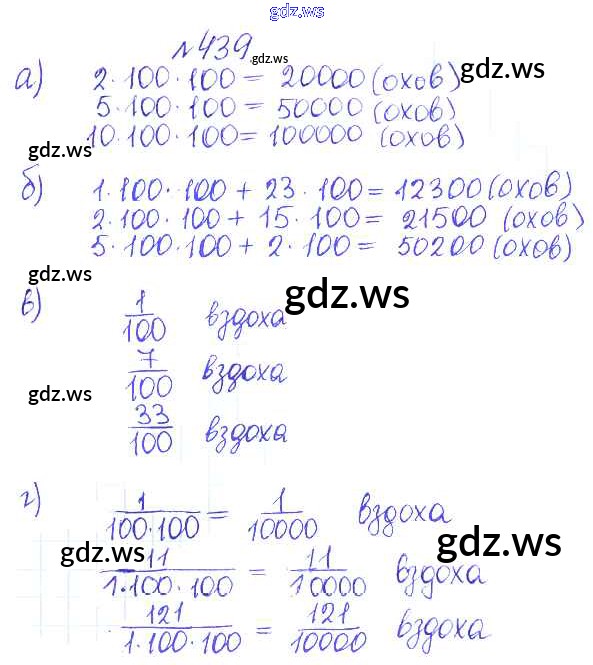 gdz.ws
№439 gdz.ws
а) 2·100·100 = 20000 (охов) gdz.ws
5·100·100 = 50000 (охов)
10·100·100 = 100000 (охов)
gdz.ws
б) 1·100·100 + 23·100 = 12300 (охов)
2·100·100 + 15·100 = 21500 (охов)
5·100·100 + 2·100 = 50200 (охов)
gdz.ws
gdz.ws
в) 1/100 вздоха
7/100 вздоха
gdz.ws
33/100 вздоха
г) 1/100·100 = 1/10000 вздоха
gdz.ws gdz.ws
11/1·100·100 = 11/10000 вздоха
121/1·100·100 = 121/10000 вздоха